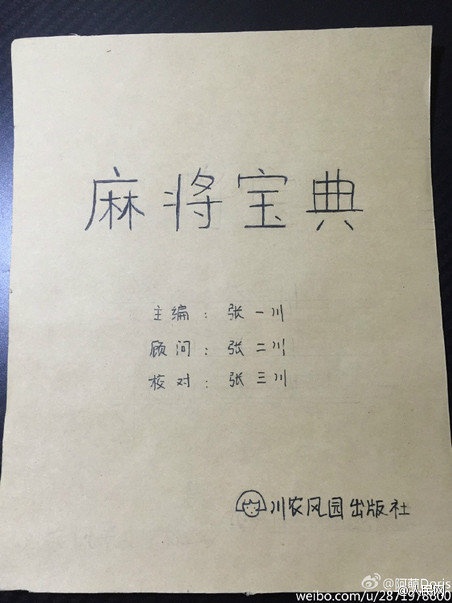 麻将宝典
主编：张一川
顾问：张二川
校对：张三川
川农风园出版社
@阿萌Doris
@人民网
weibo.com/u/2871976600